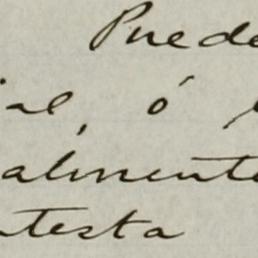 Puede
ial, ó
almente
testa